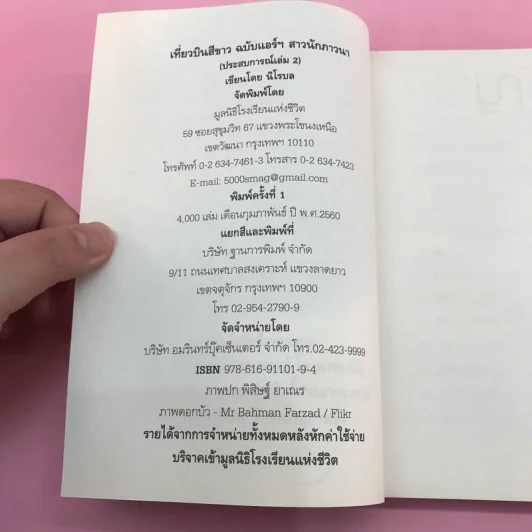 เที่ยวบินสีขาว ฉบับแอร์ฯ สาวนักภาวนา
(ประสบการณ์เล่ม 2)
เขียนโดย นิโรบล
จัดพิมพ์โดย
มูลนิธิโรงเรียนแห่งชีวิต
59 ซอยสุขุมวิท 67 แขวงพระโขนงเหนือ
เขตวัฒนา กรุงเทพฯ 10110
โทรศัพท์ 0-2 634-7461-3 โทรสาร 0-2 634-7423
E-mail: 5000smag@gmail.com
พิมพ์ครั้งที่ 1
4,000 เล่ม เดือนกุมภาพันธ์ ปี พ.ศ.2560
แยกสีและพิมพ์ที่
บริษัท ฐานการพิมพ์ จำกัด
9/11 ถนนเทศบาลสงเคราะห์ แขวงลาดยาว
เขตจตุจักร กรุงเทพฯ 10900
โทร 02-954-2790-9
จัดจำหน่ายโดย
บริษัท อมรินทร์บุ๊คเซ็นเตอร์ จำกัด โทร.02-423-9999
ISBN 978-616-91101-9-4
ภาพปก พิสิษฐ์ ยาเณร
ภาพดอกบัว - Mr Bahman Farzad / Flikr
รายได้จากการจำหน่ายทั้งหมดหลังหักค่าใช้จ่าย
บริจาคเข้ามูลนิธิโรงเรียนแห่งชีวิต